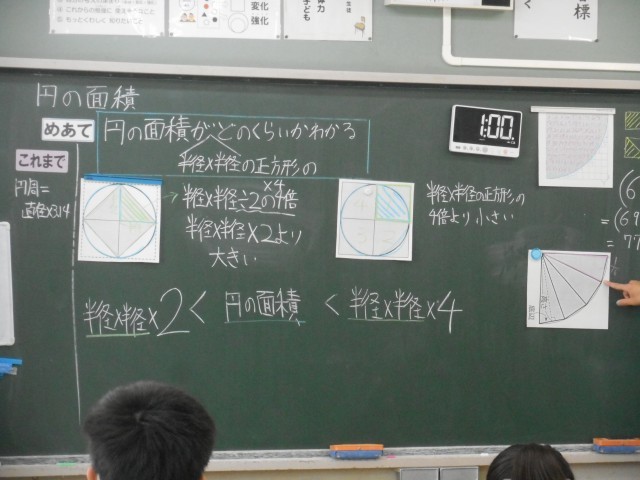 変化
強化
体力
子ども
目標
円の面積
めあて
円の面積がどのくらいかわかる
半径×半径の正方形の
これまで
円周=
直径×3.14
半径×半径÷2の4倍
×4
半径×半径×2より
大きい
半径×半径の正方形の
4倍より小さい
1:00
半径×半径×2 < 円の面積 < 半径×半径×4
(6
=(6
=77
高さ
底辺